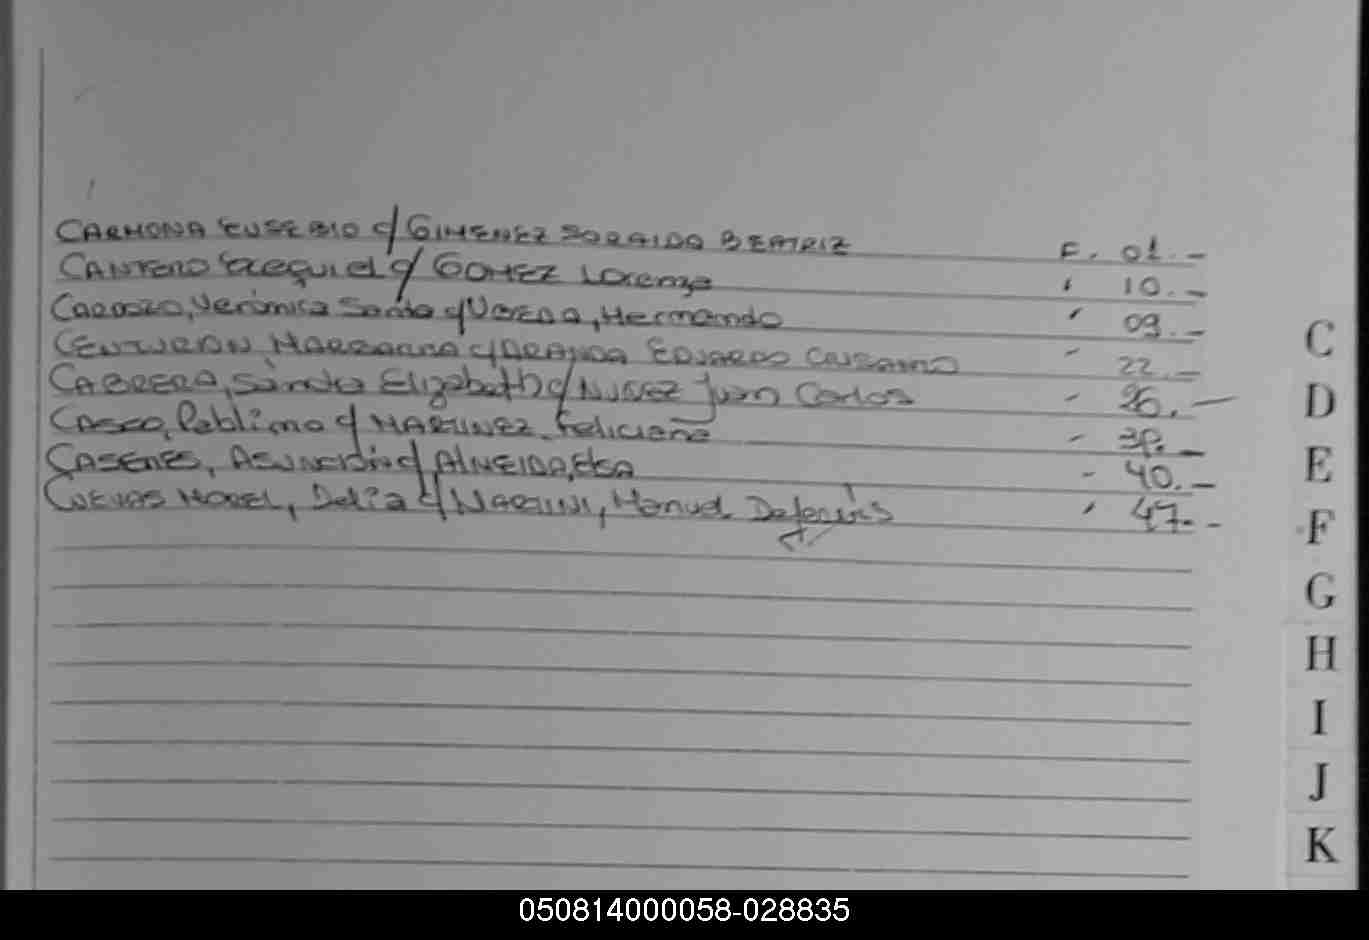 CARMONA EUSEBIO c/ GIMENEZ SORAIDA BEATRIZ F. 01.-
CANTERO Ezequiel c/ GOMEZ Lorenza " 10.-
CARDOZO, Verónica Santa c/ UBEDA, Hermando " 09.-
CENTURION MARGARITA c/ ARANDA EDUARDO - 22.-
CABRERA, Sandra Elizabeth c/ NUÑEZ Juan Carlos - 26.-
CASCO, Pablino c/ MARTINEZ Feliciana -
CASERES, ASUNCIÓN c/ ALMEIDA, ELSA - 40.-
CUEVAS MOREL, Delia c/ MARTINI, Manuel " 47.-
C
D
E
F
G
H
I
J
K
050814000058-028835